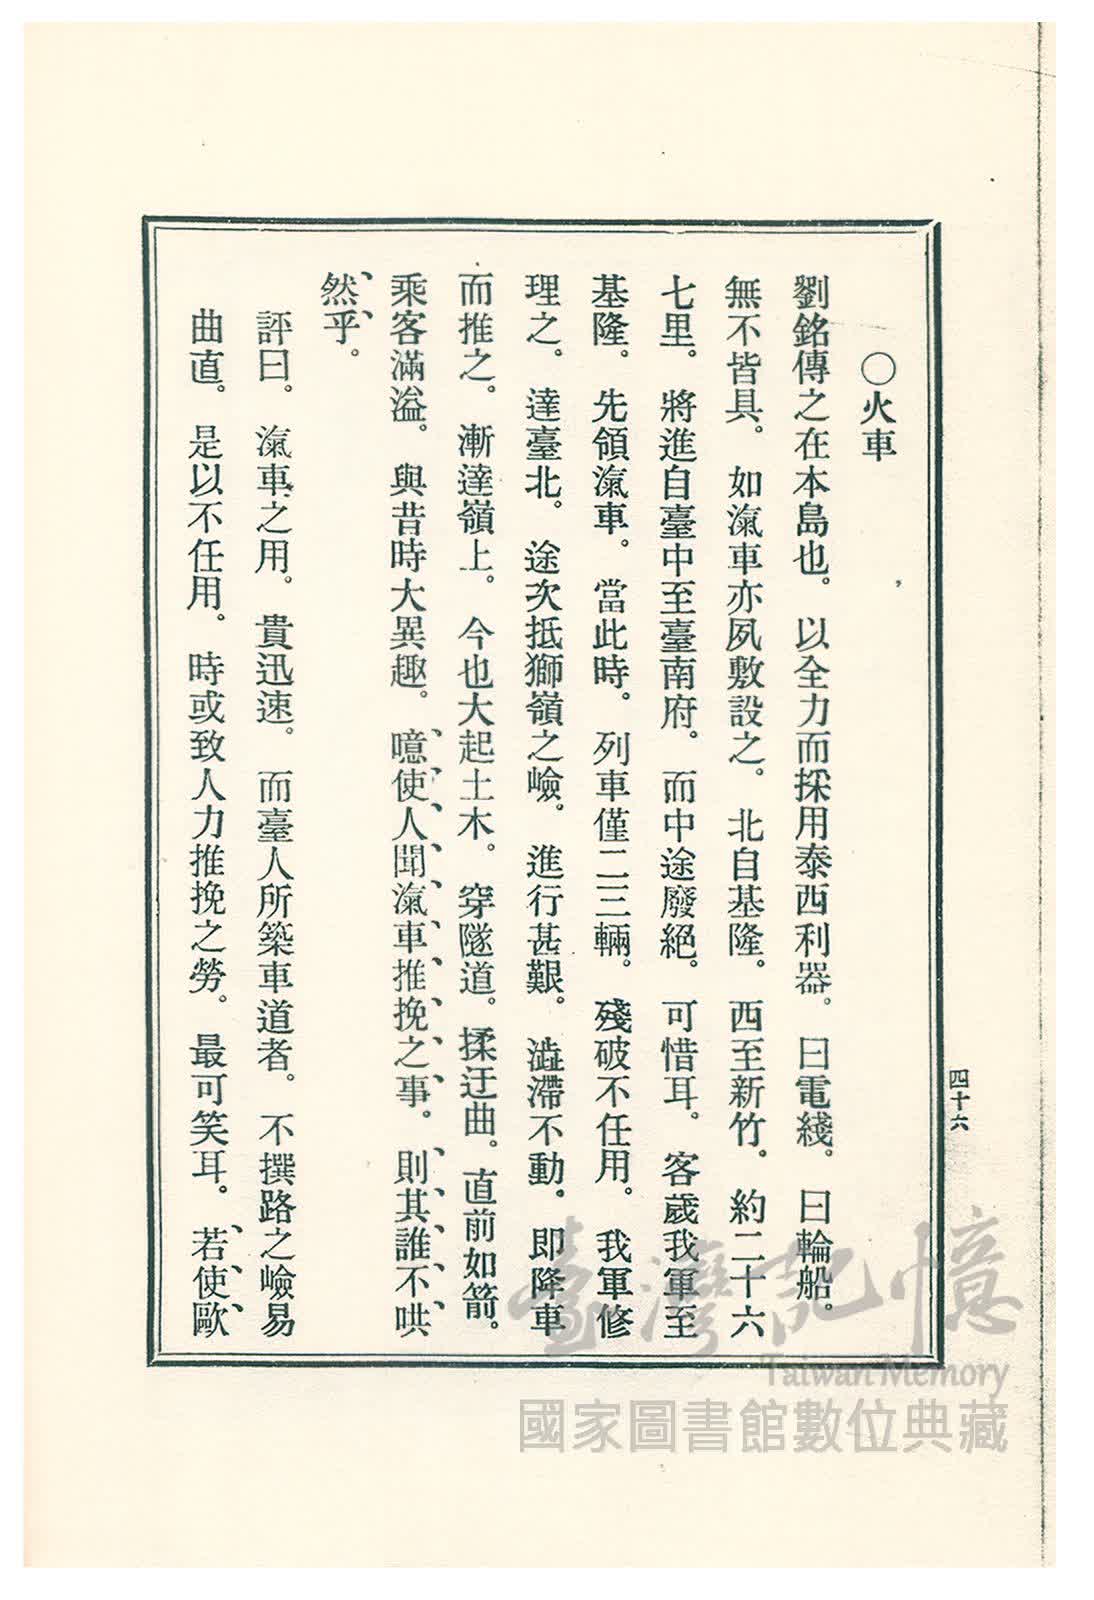 ○火車
劉銘傳之在本島也。以全力而採用泰西利器。曰電綫。曰輪船。
無不皆具。如滊車亦夙敷設之。北自基隆。西至新竹。約二十六
七里。將進自臺中至臺南府。而中途廢絕。可惜耳。客歲我軍至
基隆。先領滊車。當此時。列車僅二三輛。殘破不任用。我軍修
理之。達臺北。途次抵獅嶺之嶮。進行甚艱。澁滯不動。即降車
而推之。漸達嶺上。今也大起土木。穿隧道。揉迂曲。直前如箭。
乘客滿溢。與昔時大異趣。噫使人聞滊車推挽之事。則其誰不哄
然乎。
評曰。滊車之用。貴迅速。而臺人所築車道者。不撰路之嶮易
曲直。是以不任用。時或致人力推挽之勞。最可笑耳。若使歐
四十六
臺灣記憶
Taiwan Memory
國家圖書館數位典藏